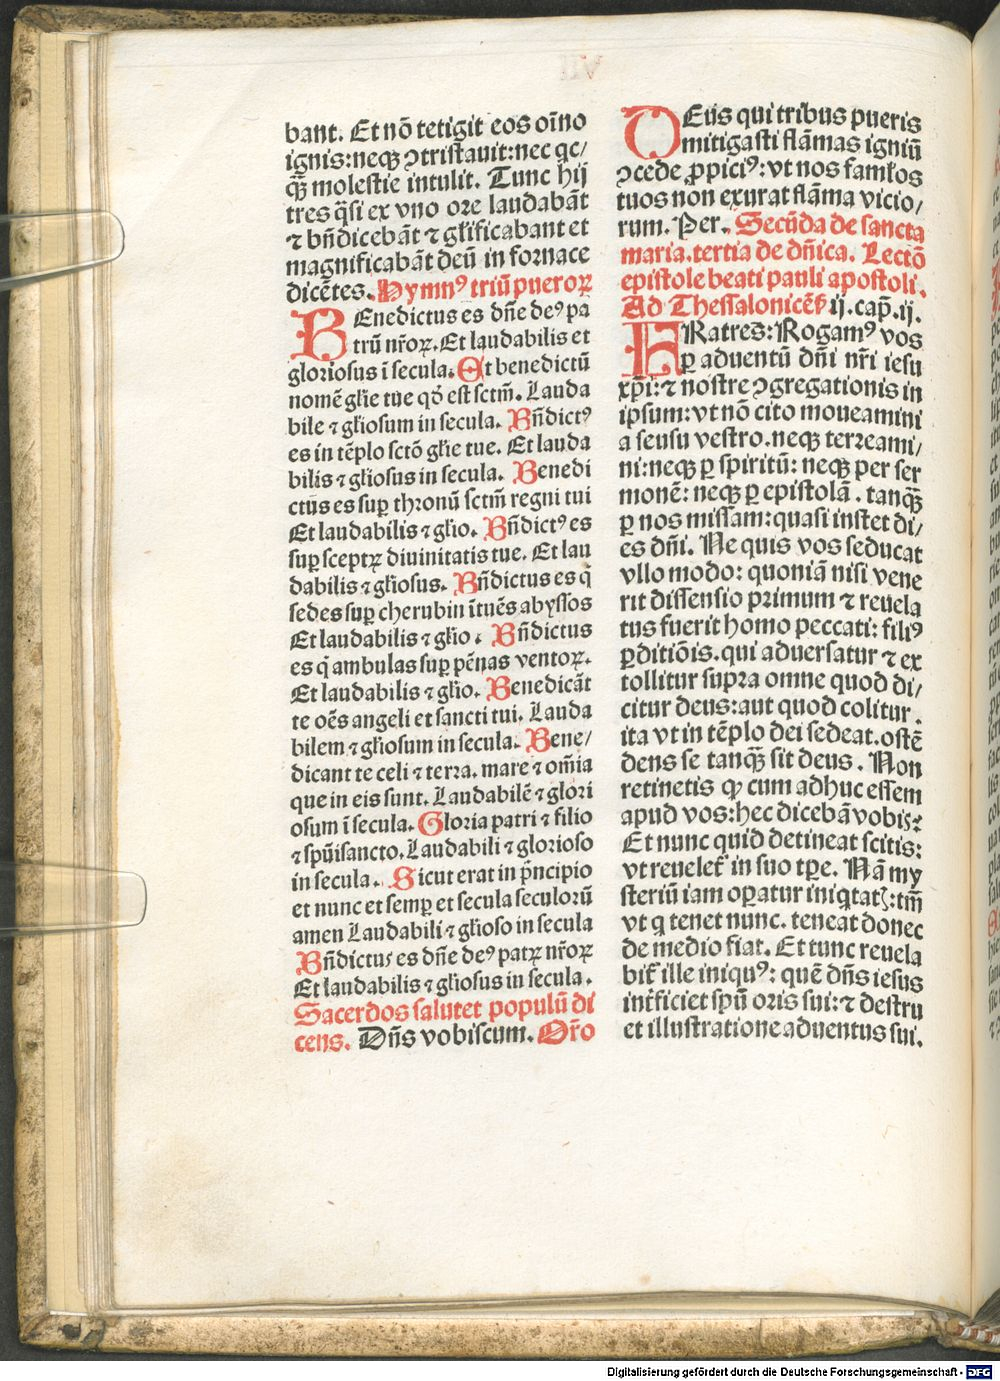 bant. Et nō tetigit eos oīno
ignis:neqꝫ ↄtristauit:nec qc/
qꝫ̄ molestie intulit. Tunc hij
tres q̄si ex vno ore laudabāt
⁊ bn̄dicebāt ⁊ gl̄ificabant et
magnificabāt deū in fornace
dicētes. Hymnꝰ triū pueroꝝ
BEnedictus es dn̄e deꝰ pa
trū nr̄oꝝ. Et laudabilis et
gloriosus ī secula. Et benedictū
nomē gl̄ie tue qḋ est sctm̄. Lauda
bile ⁊ gl̄iosum in secula. Bn̄dictꝰ
es in tēplo sctō gl̄ie tue. Et lauda
bilis ⁊ gl̄iosus in secula. Benedi
ctus es suꝑ thronū sctm̄ regni tui
Et laudabilis ⁊ gl̄io. Bn̄dictꝰ es
suꝑ sceptꝝ diuinitatis tue. Et lau
dabilis ⁊ gl̄iosus. Bn̄dictus es q̇
sedes suꝑ cherubin ītuēs abyssos
Et laudabilis ⁊ gl̄io. Bn̄dictus
es q̇ ambulas suꝑ pēnas ventoꝝ.
Et laudabilis ⁊ gl̄io. Benedicāt
te oēs angeli et sancti tui. Lauda
bilem ⁊ gl̄iosum in secula. Bene/
dicant te celi ⁊ terra. mare ⁊ om̄ia
que in eis sunt. Laudabilē ⁊ glori
osum ī secula. Gloria patri ⁊ filio
⁊ spūisancto. Laudabili ⁊ glorioso
in secula. Sicut erat in p̄ncipio
et nunc et semꝑ et secula seculorū
amen Laudabili ⁊ gl̄ioso in secula
Bn̄dictus es dn̄e deꝰ patꝝ nr̄oꝝ
Et laudabilis ⁊ gl̄iosus in secula.
Sacerdos salutet populū di
cens. Dn̄s vobiscum. Or̄o
DEus qui tribus pueris
mitigasti flāmas igniū
ↄcede ꝓpiciꝰ: vt nos famłos
tuos non exurat flāma vicio/
rum. Per. Secūda de sancta
maria. tertia de dn̄ica. Lectō
epistole beati pauli apostoli.
Ad Thessalonicēs̄ ij. cap̄. ij.
FRatres: Rogamꝰ vos
ꝑ aduentū dn̄i nr̄i iesu
xp̄i: ⁊ nostre ↄgregationis in
ipsum: vt nō cito moueamini
a seusu vestro. neqꝫ terreami/
ni: neqꝫ ꝑ spiritū: neqꝫ per ser
monē: neqꝫ ꝑ epistolā. tanqꝫ̄
ꝑ nos missam: quasi instet di/
es dn̄i. Ne quis vos seducat
vllo modo: quoniā nisi vene
rit dissensio primum ⁊ reuela
tus fuerit homo peccati: filiꝰ
ꝑditiōis. qui aduersatur ⁊ ex
tollitur supra omne quod di/
citur deus: aut quod colitur.
ita vt in tēplo dei sedeat. ostē
dens se tanqꝫ̄ sit deus. Non
retinetis ꝙ cum adhuc essem
apud vos: hec dicebā vobis?
Et nunc quid detineat scitis:
vt reueleť in suo tp̄e. Nā my
sterium iam oꝑatur iniq̇tatꝭ: tm̄
vt q̇ tenet nunc. teneat donec
de medio fiat. Et tunc reuela
biť ille iniquꝰ: quē dn̄s iesus
inťficiet spū oris sui: ⁊ destru
et illustratione aduentus sui.
Digitalisierung gefördert durch die Deutsche Forschungsgemeinschaft - DFG